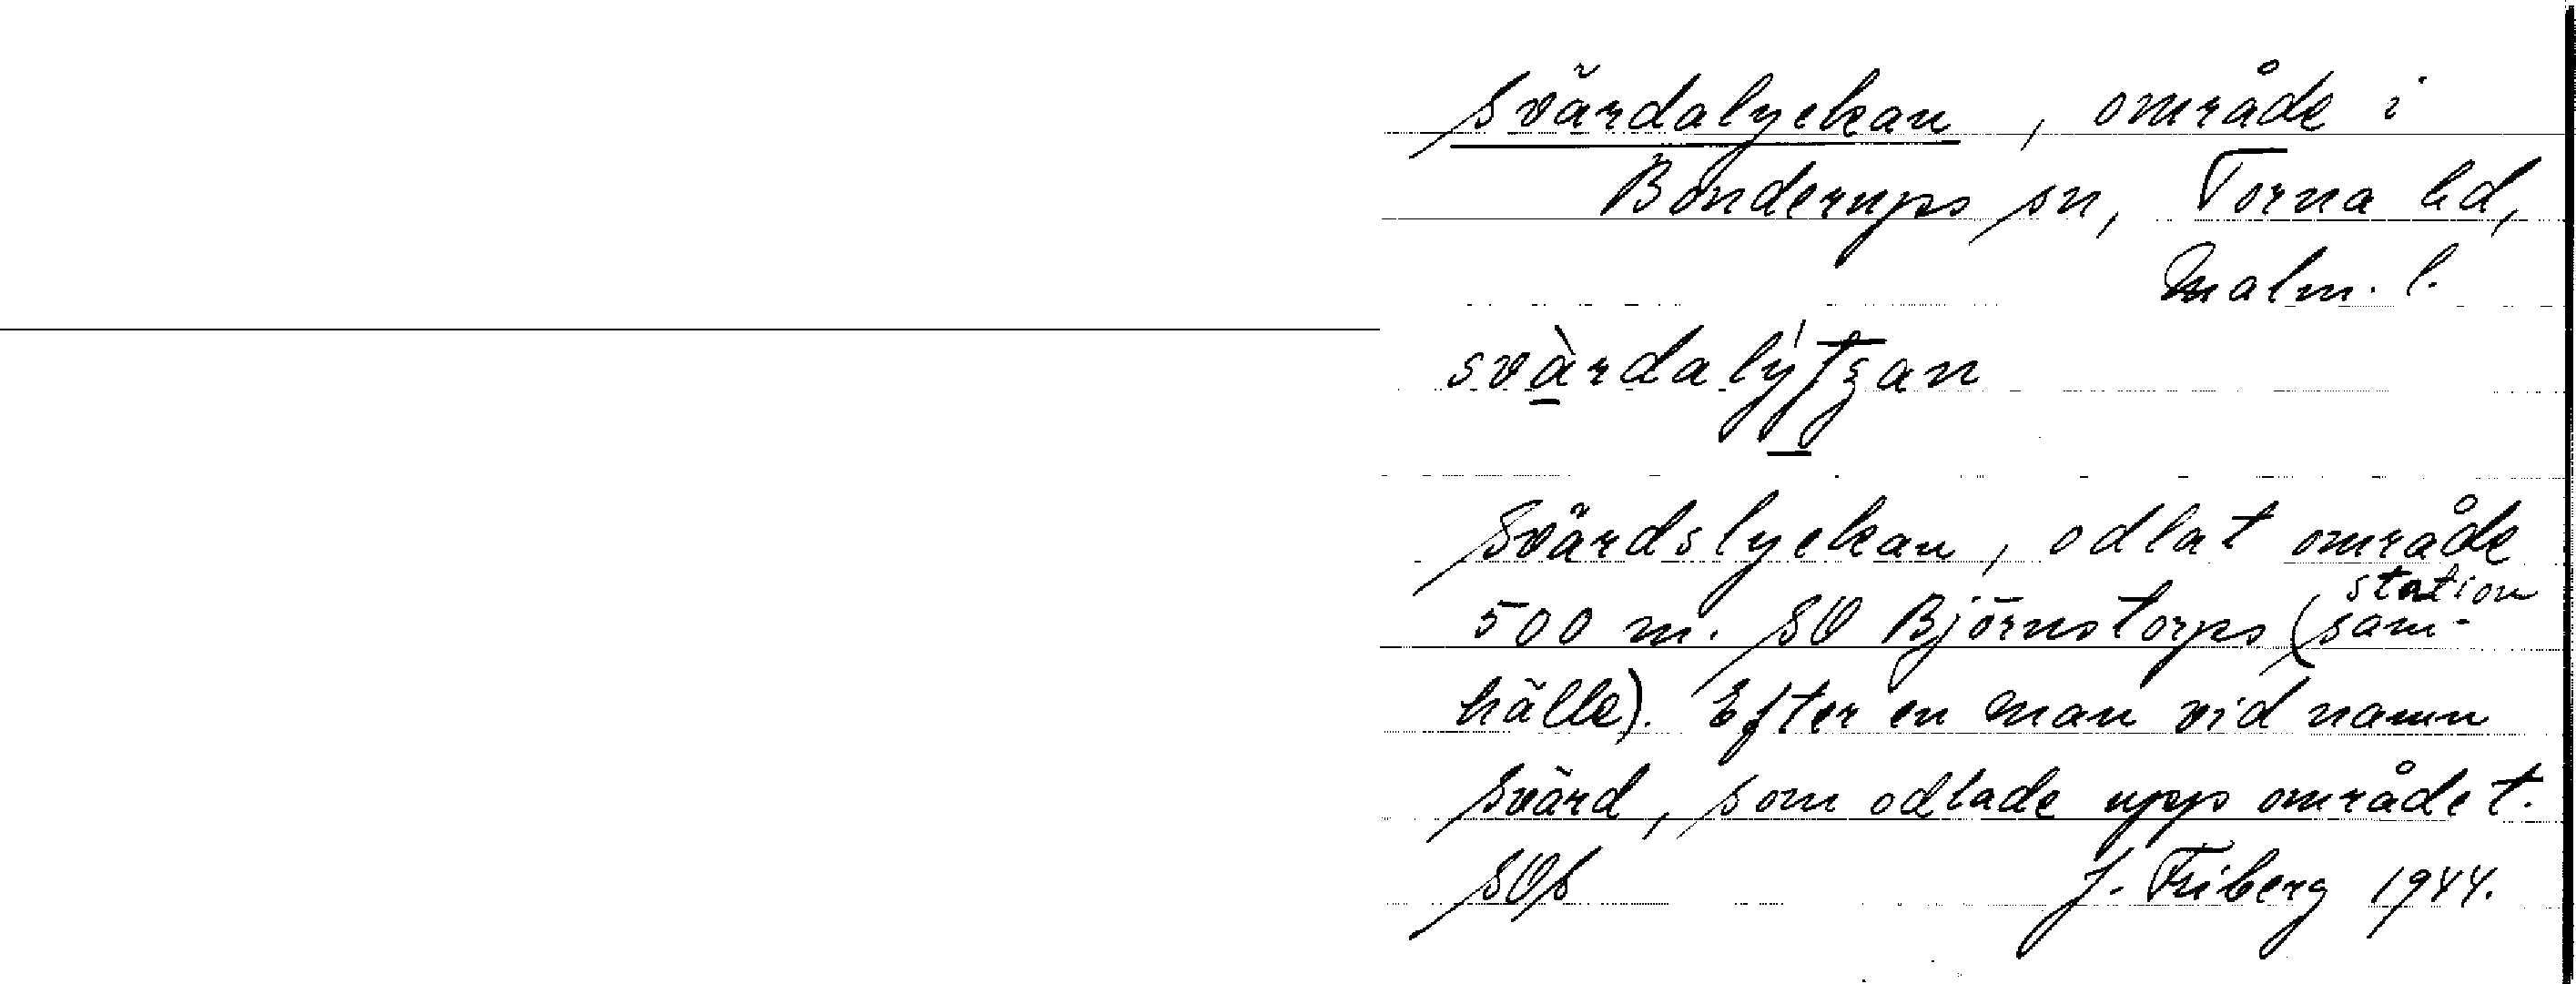 Svärdalyckan, område i
Bonderups sn, Torna hd,
Malm. l.
svàrdalýtʒan
Svärdslyckan, odlat område
500 m. SO Björnstorps (station
sam-
hälle). Efter en man vid namn
Svärd, som odlade upp området.
SOS J. Friberg 1944.